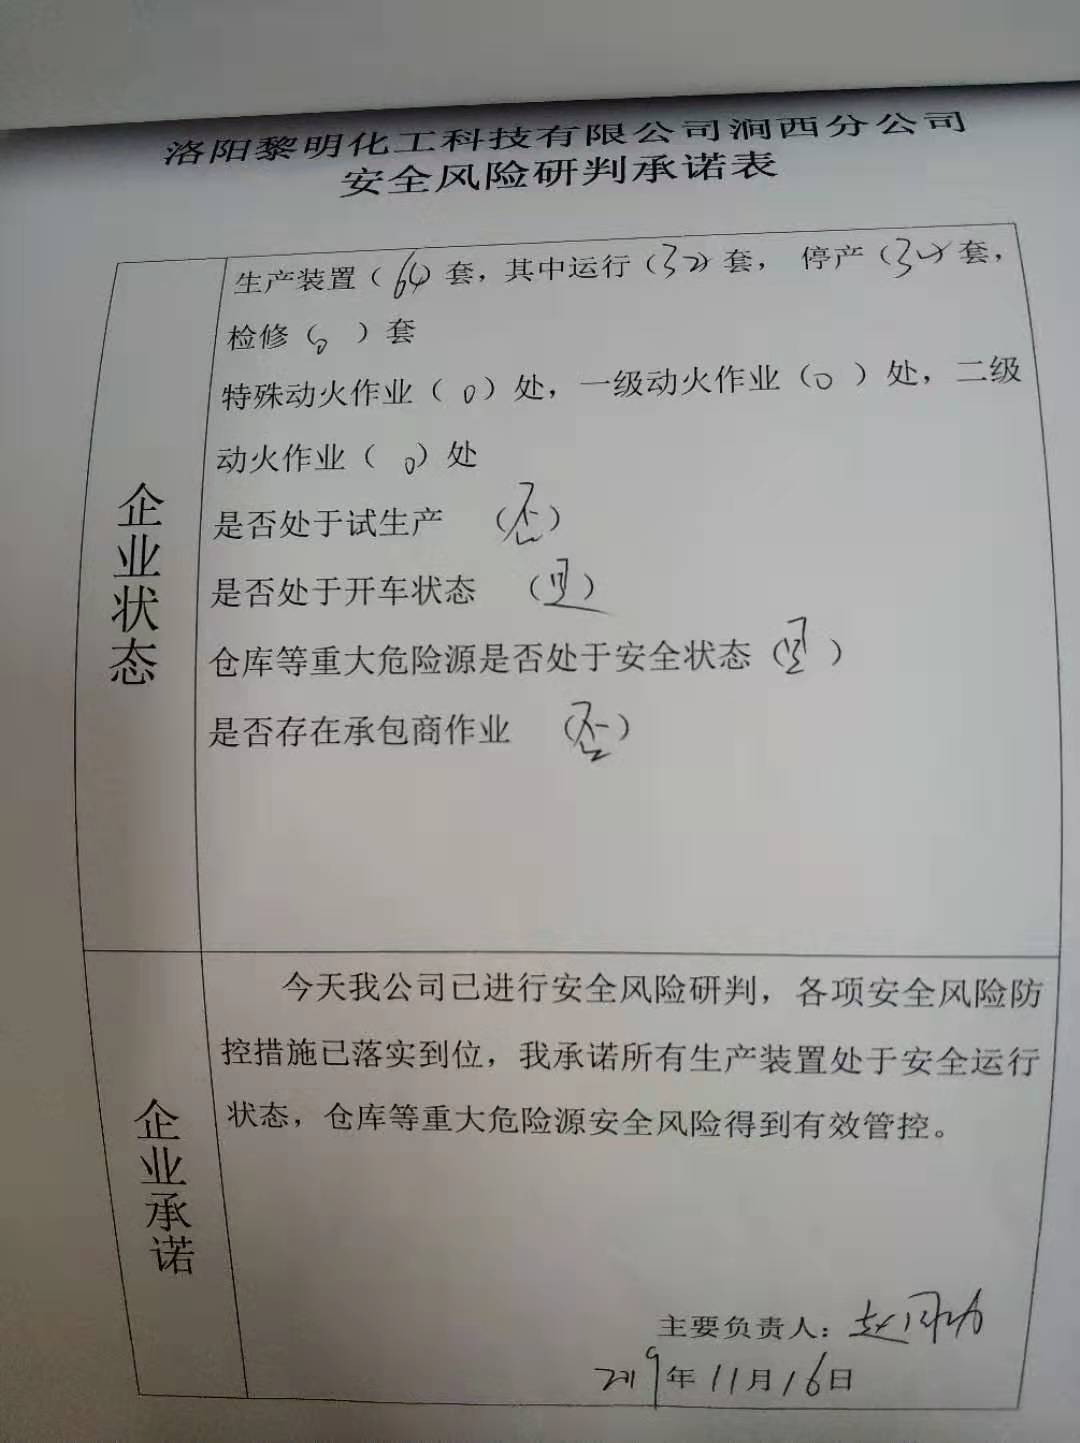 洛阳黎明化工科技有限公司涧西分公司
安全风险研判承诺表
企业状态
生产装置（64）套，其中运行（32）套， 停产（32）套，
检修（0 ）套
特殊动火作业（ 0）处，一级动火作业（0 ）处，二级
动火作业（ 0）处
是否处于试生产 （否）
是否处于开车状态 （是）
仓库等重大危险源是否处于安全状态（是 ）
是否存在承包商作业 （否）
企业承诺
今天我公司已进行安全风险研判，各项安全风险防
控措施已落实到位，我承诺所有生产装置处于安全运行
状态，仓库等重大危险源安全风险得到有效管控。
主要负责人：赵
2019年11月16日